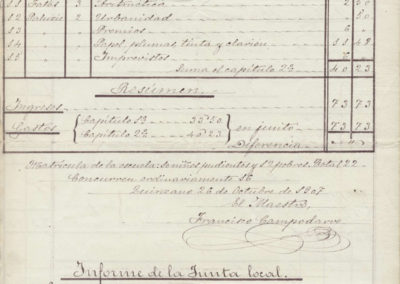 51 Gasbs 3 Aritmética " 2 50
52 Paluzie 2 Urbanidad " " 50
53 Premios 6
54 Papel, plumas, tinta y clarion 11 48
55 Imprevistos 6
Suma el capítulo 2º 40 23
Resúmen.
Ingresos 73 73
Gastos { Capítulo 1º 33'50 } en junto 73 73
Capítulo 2º 40'23
Diferencia " "
Matrícula de la escuela: 10 niños pudientes y 12 pobres. Total 22
Concurren ordinariamente 16
Quinzano 26 de Octubre de 1907
El Maestro,
Francisco Campodarve
Informe de la Junta local.